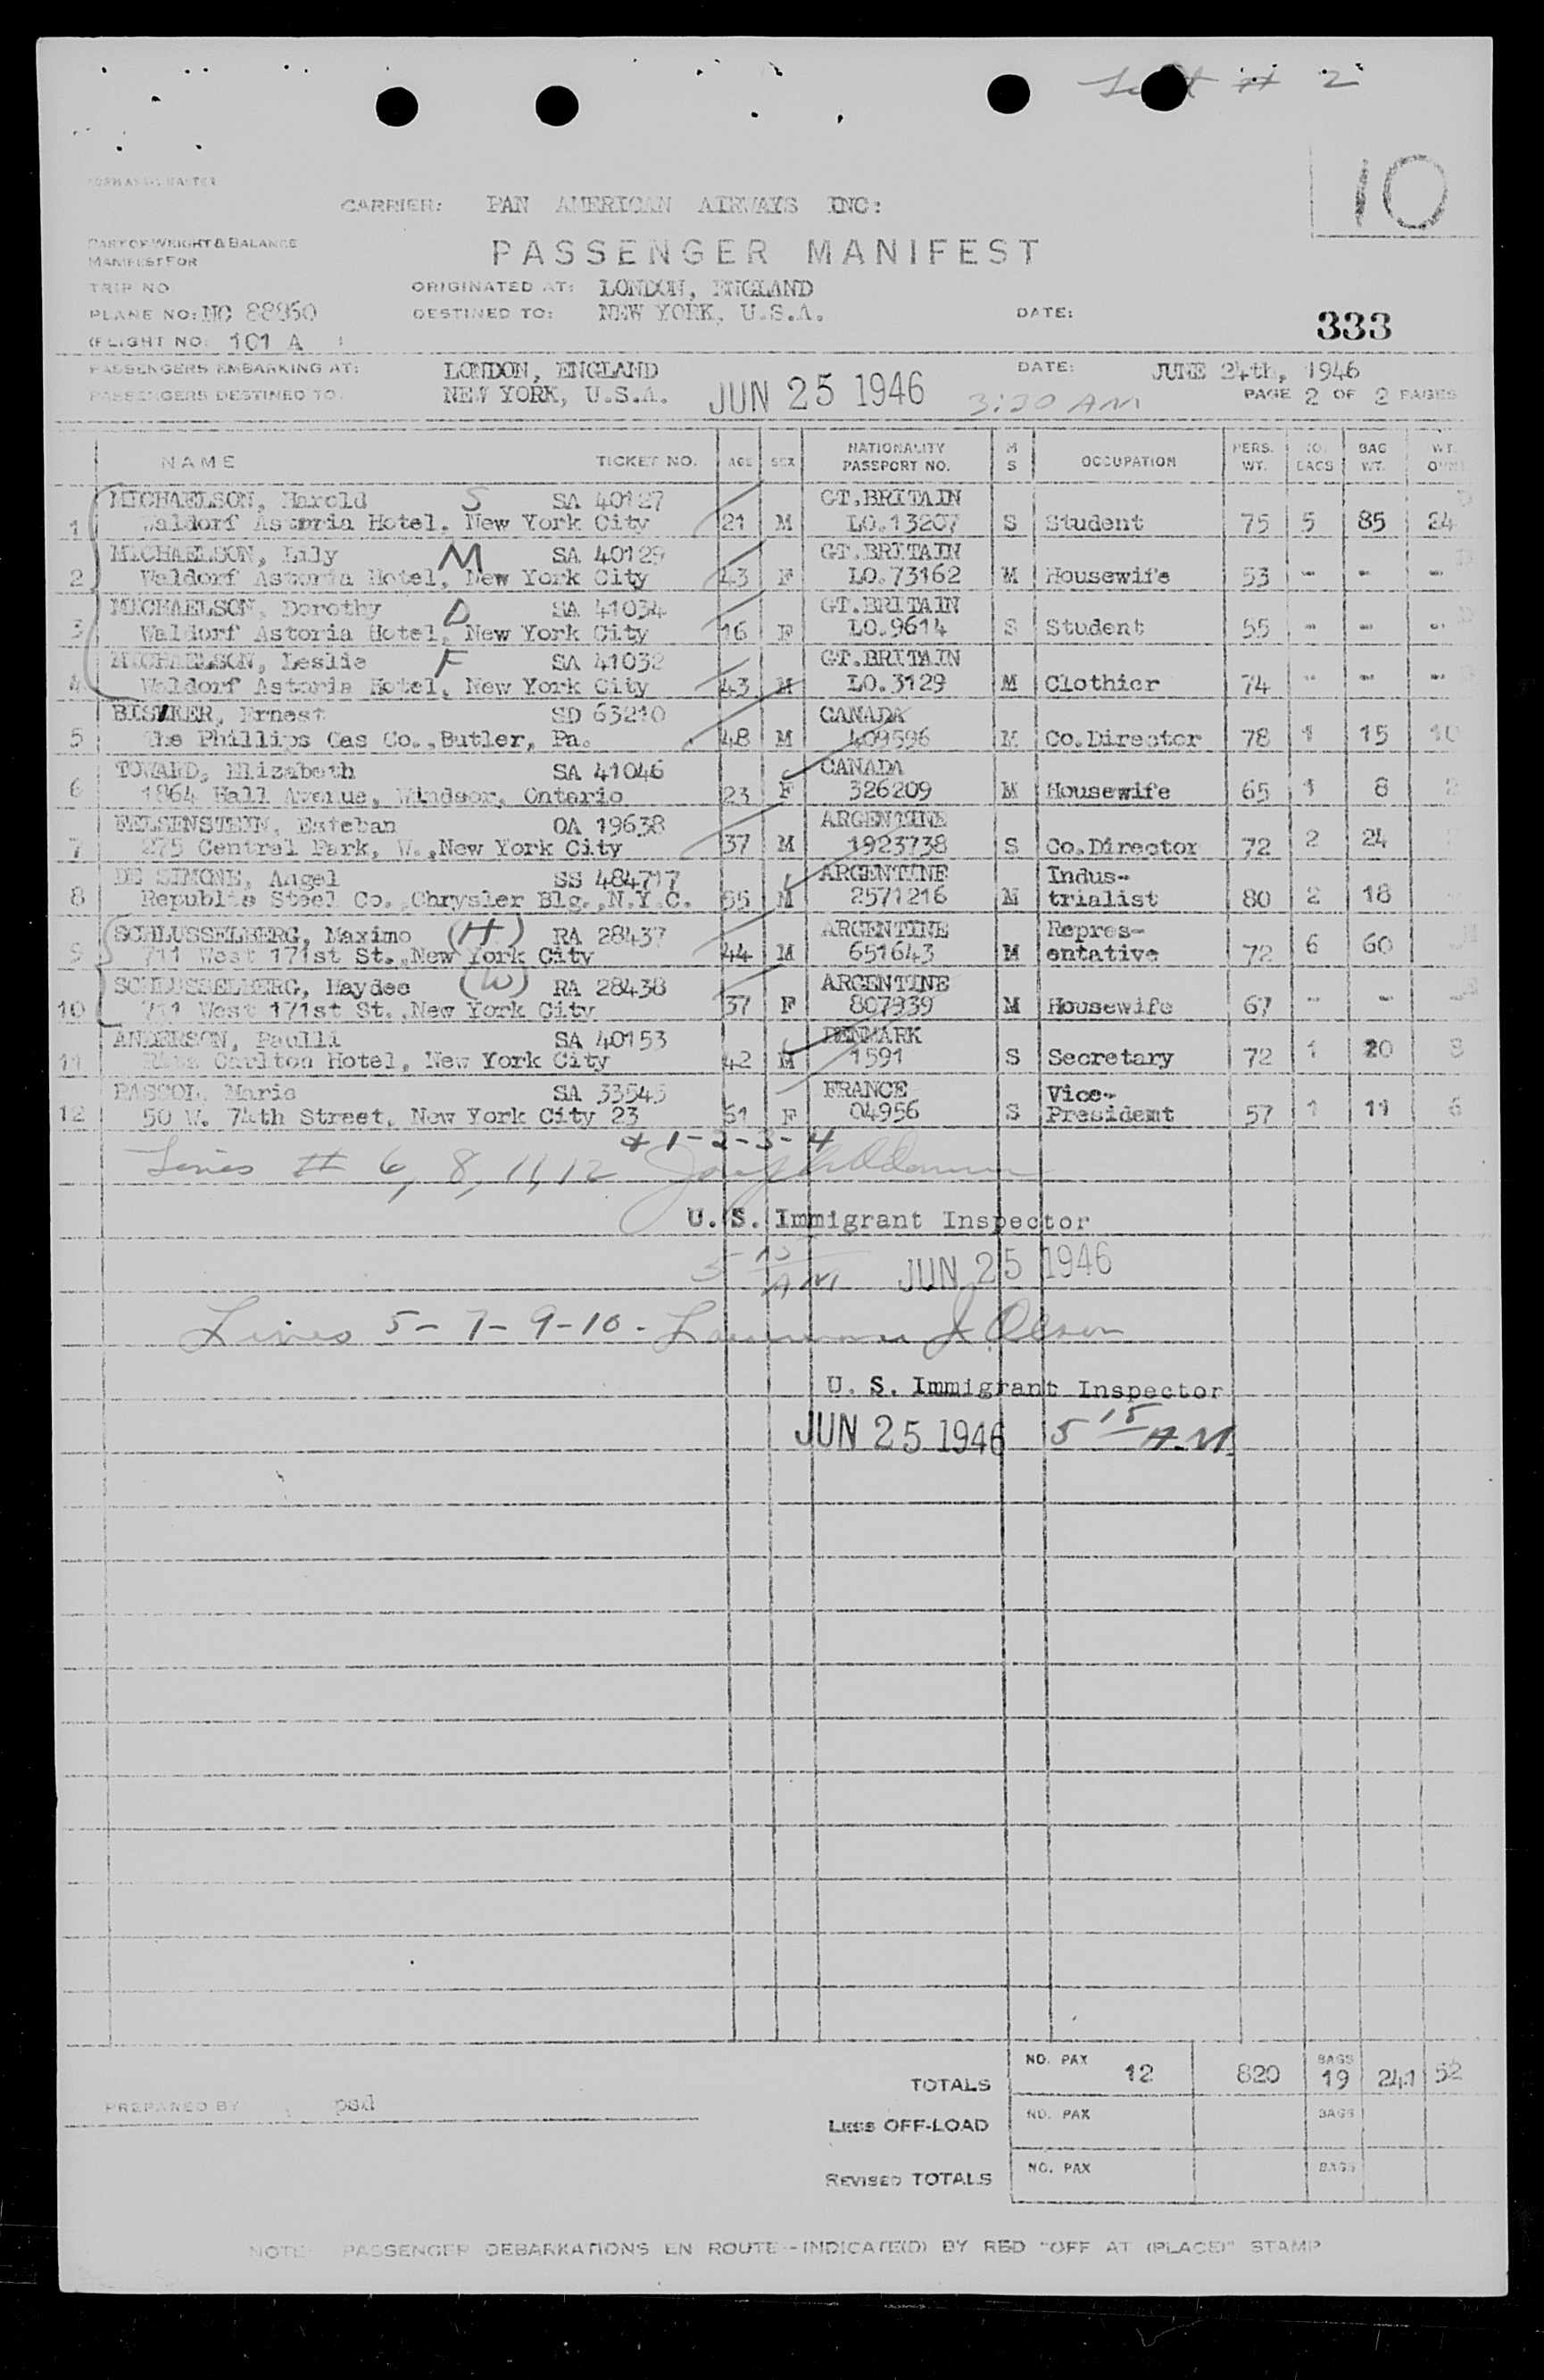 # 2
10
CARRIER: PAN AMERICAN AIRWAYS INC:
PART OF WEIGHT & BALANCE
MANIFEST FOR
PASSENGER MANIFEST
TRIP NO
ORIGINATED AT: LONDON, ENGLAND
PLANE NO: NC 88850
DESTINED TO: NEW YORK, U.S.A.
DATE:
333
(FLIGHT NO: 101 A )
PASSENGERS EMBARKING AT: LONDON, ENGLAND
DATE: JUNE 24th, 1946
PASSENGERS DESTINED TO: NEW YORK, U.S.A.
JUN 25 1946 3:20 AM
PAGE 2 OF 2 PAGES
NAME TICKET NO. AGE SEX NATIONALITY PASSPORT NO. M S OCCUPATION PERS. WT. NO. BAGS BAG WT. WT.
MICHAELSON, Harold S SA 40127 GT.BRITAIN
1 Waldorf Astoria Hotel, New York City 21 M LO.13207 S Student 75 5 85 24
MICHAELSON, Lily M SA 40129 GT.BRITAIN
2 Waldorf Astoria Hotel, New York City 43 F LO.73162 M Housewife 53 - - -
MICHAELSON, Dorothy D SA 41034 GT.BRITAIN
3 Waldorf Astoria Hotel, New York City 16 F LO.9614 S Student 55 - - -
MICHAELSON, Leslie F SA 41032 GT.BRITAIN
4 Waldorf Astoria Hotel, New York City 43 M LO.3129 M Clothier 74 - - -
Ernest SD 63210 CANADA
5 The Phillips Gas Co.,Butler, Pa. 48 M 409596 M Co.Director 78 1 15 10
TOWARD, Elizabeth SA 41046 CANADA
6 1864 Hall Avenue, Windsor, Ontario 23 F 326209 M Housewife 65 1 8 2
FELSENSTEIN, Esteban OA 19638 ARGENTINE
7 275 Central Park, W.,New York City 37 M 1923738 S Co.Director 72 2 24
DE SIMONE, Angel SS 484717 ARGENTINE Indus-
8 Republic Steel Co.,Chrysler Blg.,N.Y.C. 55 M 2571216 M trialist 80 2 18
SCHLUSSELBERG, Maximo (H) RA 28437 ARGENTINE Repres-
9 711 West 171st St.,New York City 44 M 651643 M entative 72 6 60
SCHLUSSELBERG, Haydee (W) RA 28438 ARGENTINE
10 711 West 171st St.,New York City 37 F 807939 M Housewife 67 - - -
ANDERSON, Paulli SA 40153 DENMARK
11 Ritz Carlton Hotel, New York City 42 M 1591 S Secretary 72 1 20 8
PASCOL, Marie SA 33545 FRANCE Vice-
12 50 W. 74th Street, New York City 23 51 F 04956 S President 57 1 11 6
& 1-2-3-4
Lines # 6, 8, 11, 12
U. S. Immigrant Inspector
5 15 AM JUN 25 1946
Lines 5-7-9-10- J. Olson
U. S. Immigrant Inspector
JUN 25 1946 5 15 A.M.
TOTALS NO. PAX 12 820 BAGS 19 241 52
PREPARED BY psd
LESS OFF-LOAD NO. PAX BAGS
REVISED TOTALS NO. PAX BAGS
NOTE PASSENGER DEBARKATIONS EN ROUTE - INDICATE(D) BY RED "OFF AT (PLACE)" STAMP